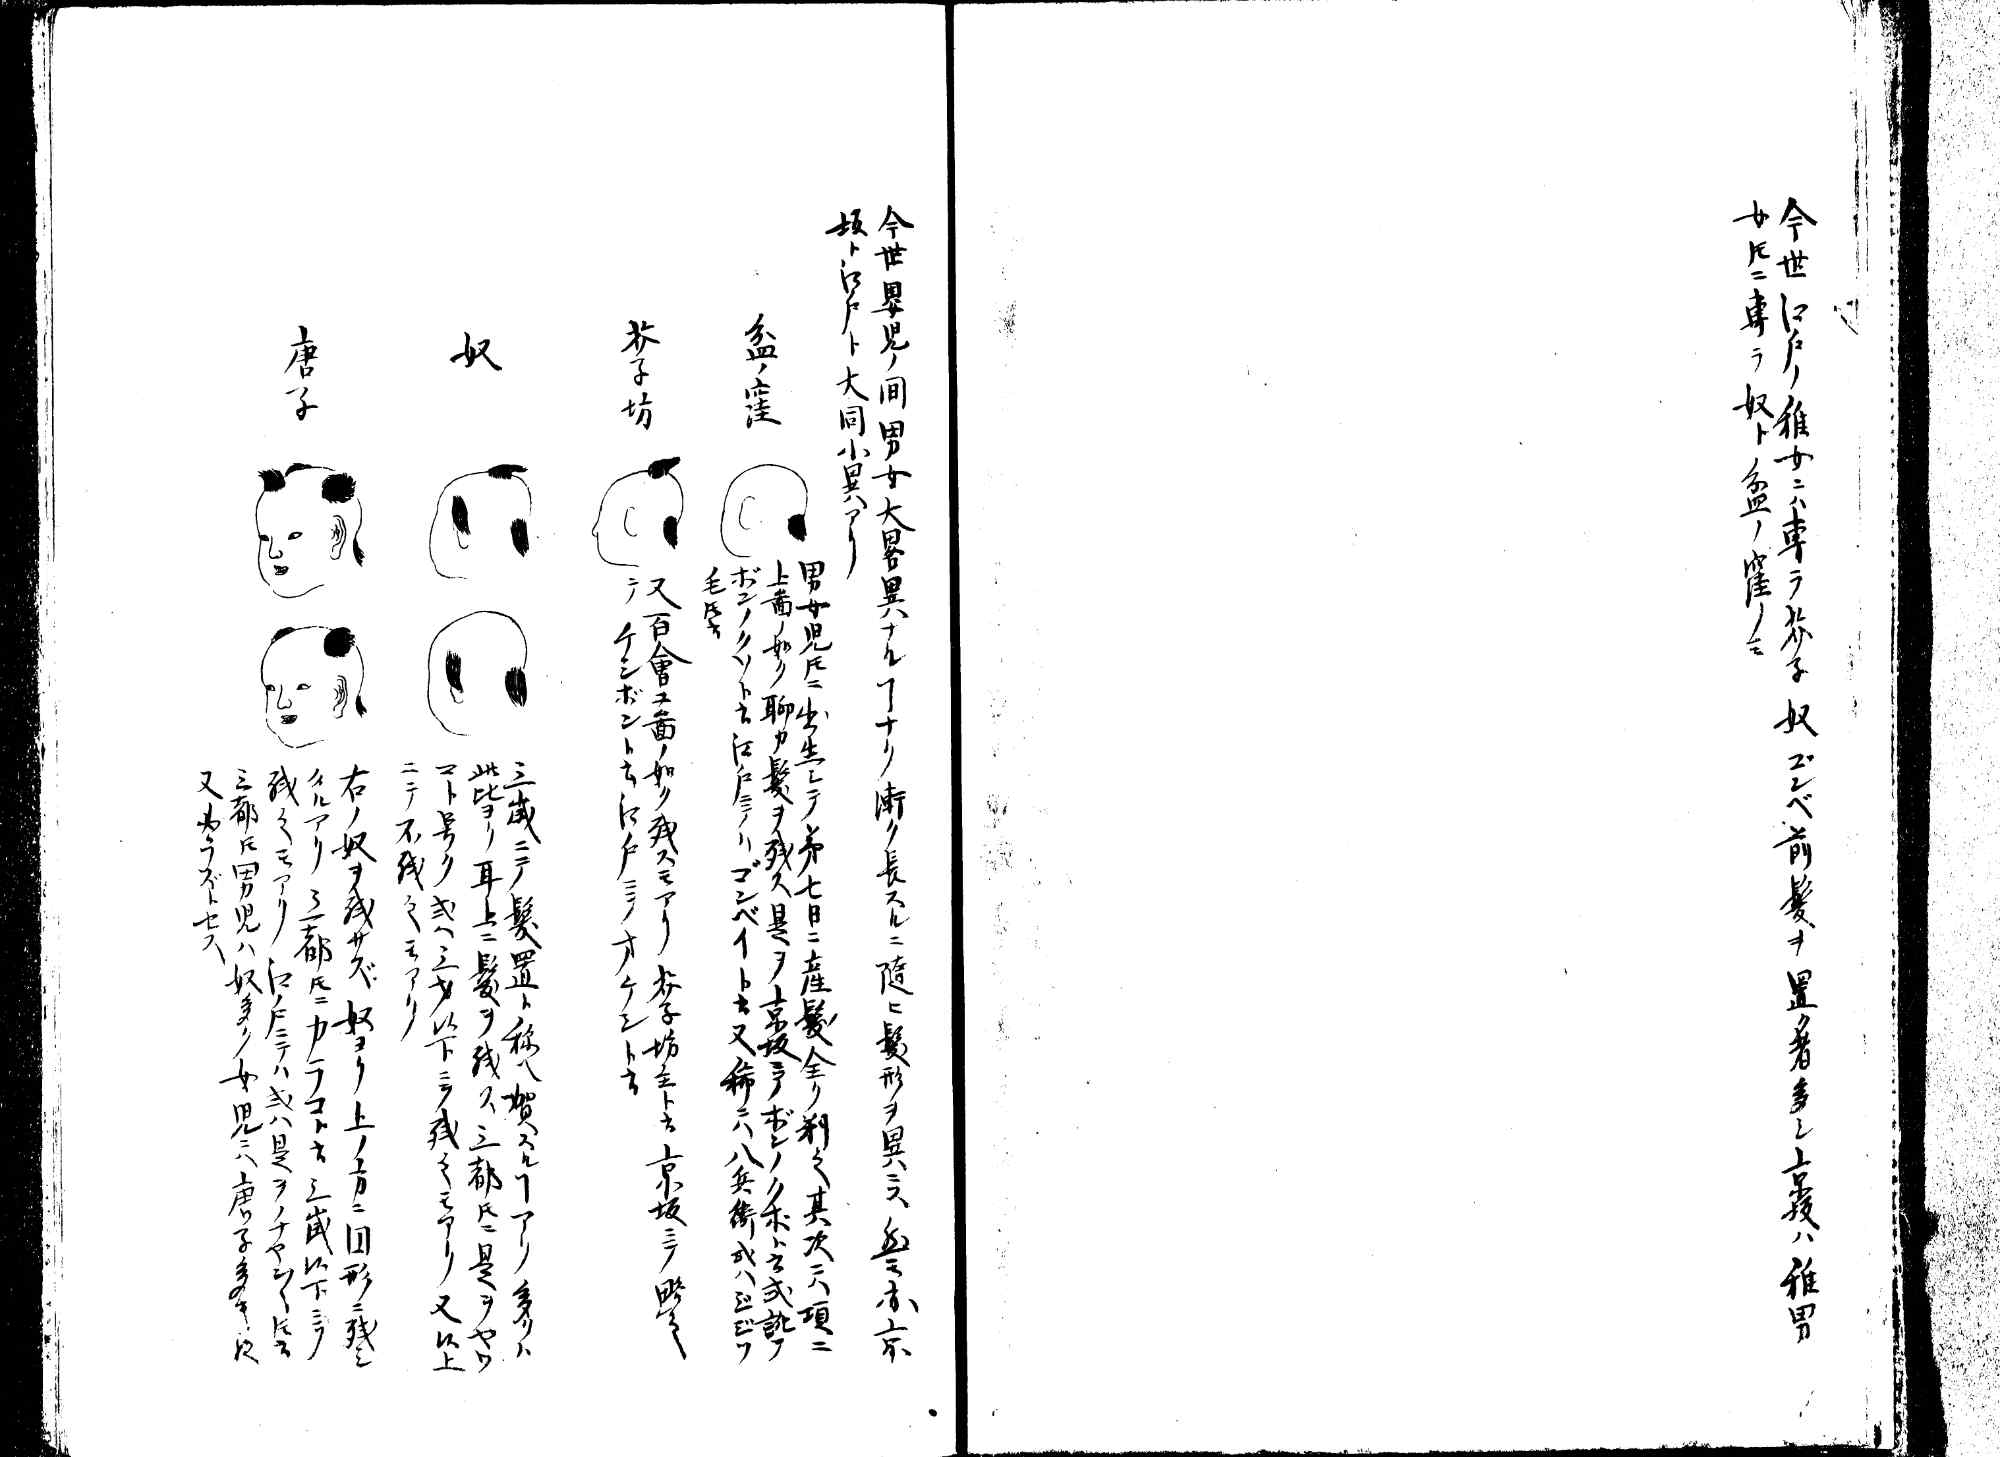 今世江戸ノ稚女ニハ専ラ芥子奴ゴンベ前髪ヲ置者多シ京坂ハ稚男
女トモニ専ラ奴ト盆ノ窪ノミ
今世嬰児ノ間男女大畧異ハナルヿナリ漸ク長スルニ随ヒ髪形ヲ異ハニス 然モ亦京
坂ト江戸ト大同小異ハアリ
盆ノ窪
男女児トモニ出生シテ第七日ニ産髪全ク剃之其次ニハ項ニ
上啚ノ如ク聊カ髪ヲ残ス是ヲ京坂ニテボンノクボト云或訛テ
ボンノクソト云江戸ニテハゴンベイト云又稀ニハ八兵衛或ハジジツ
毛トモ云
芥子坊
又百會ヱ啚ノ如ク残スモアリ芥子坊主ト云京坂ニテ略之
テケシボント云江戸ニテオケシト云
奴
三歳ニテ髪置ト称ヘ賀スルヿアリ多クハ
此比ヨリ耳上ニ髪ヲ残ス三都トモニ是ヲヤツ
コト号ク或ハ三才以下ニテ残之モアリ又以上
ニテ不残之モアリ
唐子
右ノ奴ヲ残サズ奴ヨリ上ノ方ニ図形ニ残シ
タルアリ三都トモニカラコト云三歳以下ニテ
残之モアリ江戸ニテハ或ハ是ヲチヤン〱トモ云
三都トモ男児ハ奴多ク女児ニハ唐子多キ
又必ラズトセス